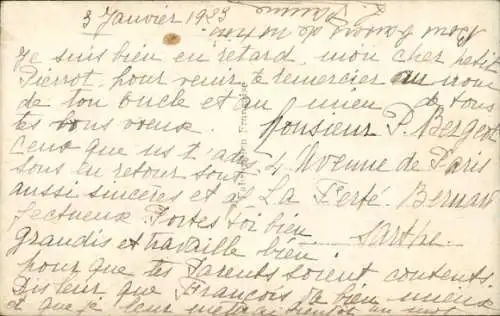 3 Janvier 1933
Je suis bien en retard, mon cher petit
Pierrot, pour venir te remercier au nom
de ton oncle et au mien de tous
tes bons voeux.
Ceux que ns t'
sous en retour sont
aussi sincères et af
fectueux. Portes toi bien
grandis et travaille bien
pour que tes Parents soient contents.
Dis leur que François va bien mieux
et que je leur mot
Monsieur P. Berger
Avenue de Paris
La Ferté. Bernar
Sarthe
Française